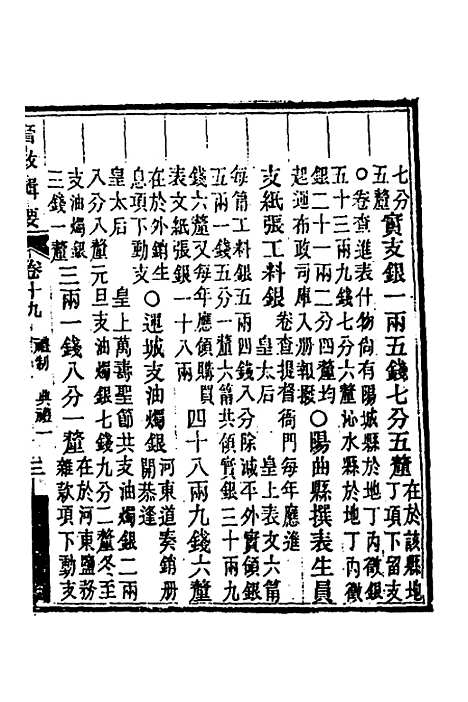 七分實支銀一兩五錢七分五釐在於該縣地
丁項下留支
五釐
○卷查進表什物尚有陽城縣於地丁內徵銀
五十三兩九錢七分六釐沁水縣於地丁內徵
銀二十一兩二分四釐均
起運布政司庫入冊報撥
○陽曲縣撰表生員
支紙張工料銀
卷查提督衙門每年應進
皇太后 皇上表文六筩
每筩工料銀五兩四錢八分除減平外實領銀
五兩一錢五分一釐六筩共領實銀三十兩九
錢六釐又每年應領購買
表文紙張銀一十八兩
四十八兩九錢六釐
在於外銷生
息項下動支
○運城支油燭銀
河東道奏銷冊
開恭逢
皇太后 皇上萬壽聖節共支油燭銀二兩
八分八釐元旦支油燭銀七錢九分二釐冬至
支油燭銀
三錢一釐
三兩一錢八分一釐
在於河東鹽務
雜款項下動支
晉政輯要 卷十九 禮制 典禮一 三